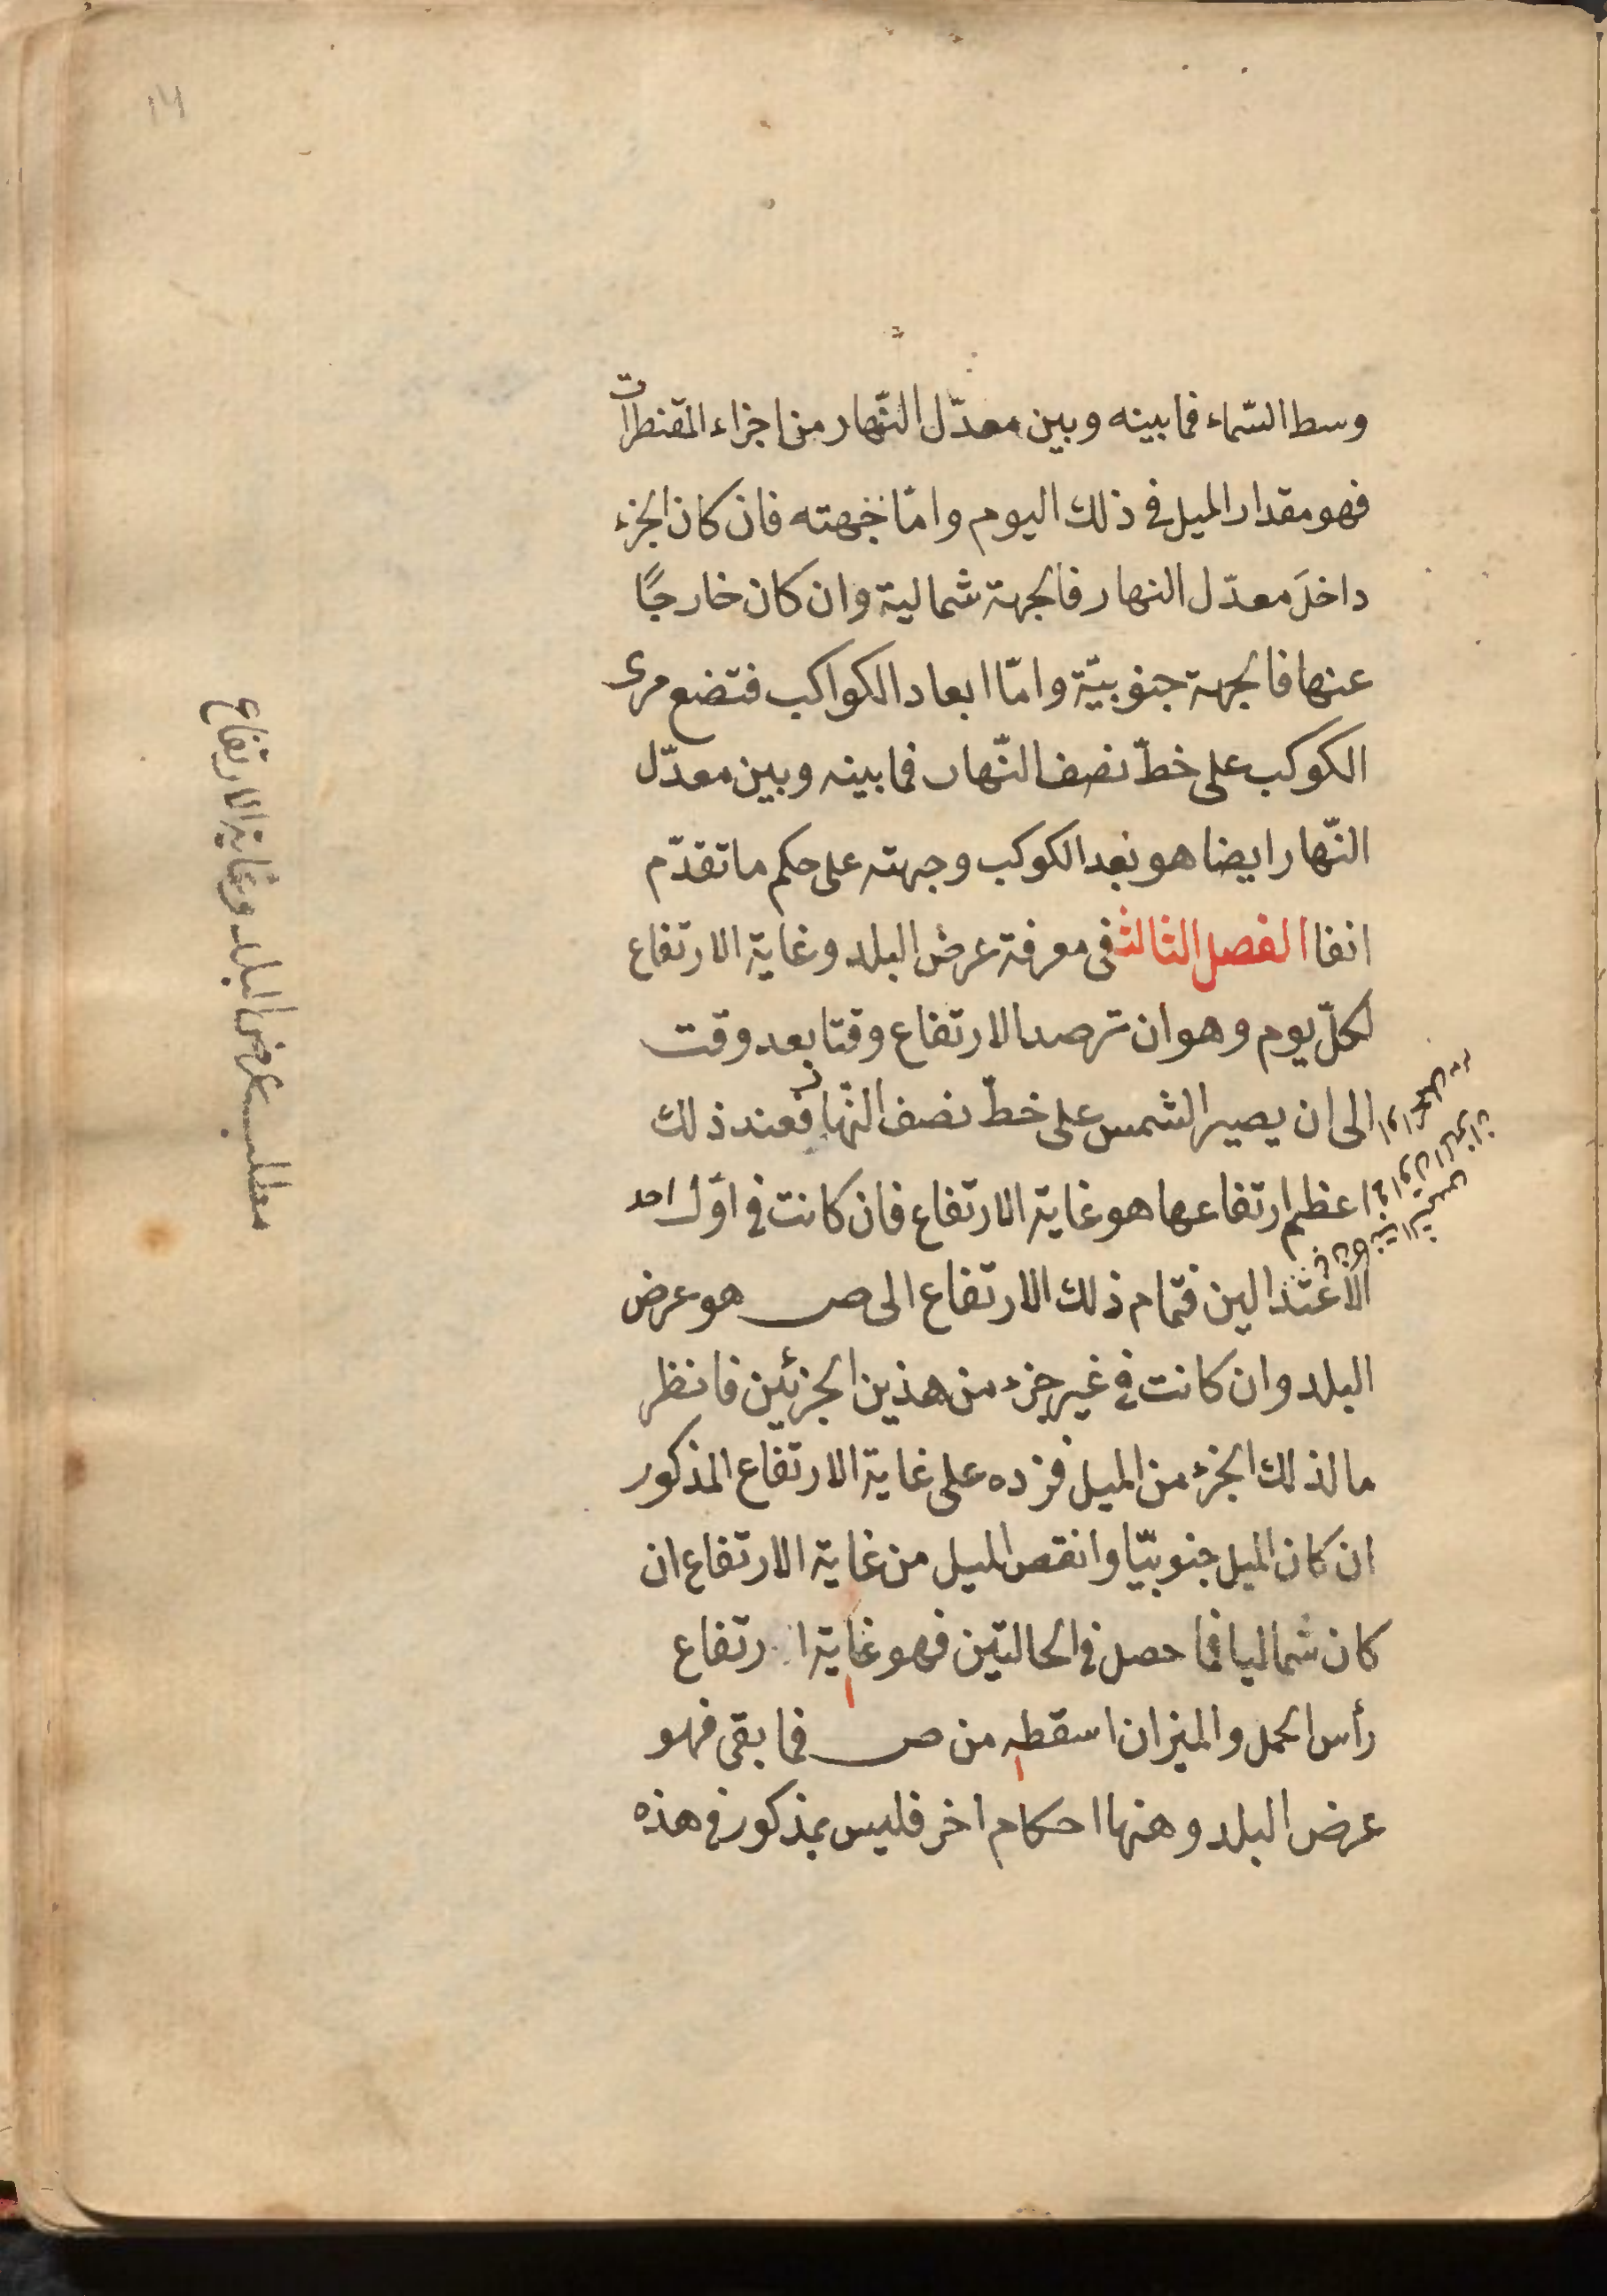 وسط السّماء فما بينه وبين معدّل النّهار من اجزاء المقنطرات
فهو مقدار الميل فى ذلك اليوم وامّا جهته فان كان الجزء
داخلَ معدّل النهار فالجهة شمالية وان كان خارجًا
عنها فالجهة جنوبيّة وامّا ابعاد الكواكب فتضع مرى
الكوكب على خطّ نصف النّهار فما بينه وبين معدّل
النّهار ايضا هو بعد الكوكب وجهته على حكم ما تقدّم
انفا الفصل الثالث فى معرفة عرض البلد وغاية الارتفاع
لكلّ يوم وهو ان ترصد الارتفاع وقتا بعد وقت
الى ان يصير الشمس على خطّ نصف النّهار فعند ذلك
اعظم ارتفاعها هو غاية الارتفاع فان كانت فى اوّل احد
الاعتدالين فتمام ذلك الارتفاع الى ص هو عرض
البلد وان كانت فى غير جزء من هذين الجزئين فانظر
ما لذلك الجزء من الميل فزده على غاية الارتفاع المذكور
ان كان الميل جنوبيّا وانقص الميل من غاية الارتفاع ان
كان شماليا فما حصل فى الحالتين فهو غاية ارتفاع
رأس الحمل والميزان اسقطه من ص فما بقى فهو
عرض البلد وهنها احكام اخر فليس بمذكور فى هذه
مطلب عرض البلد وغاية الارتفاع
١٤